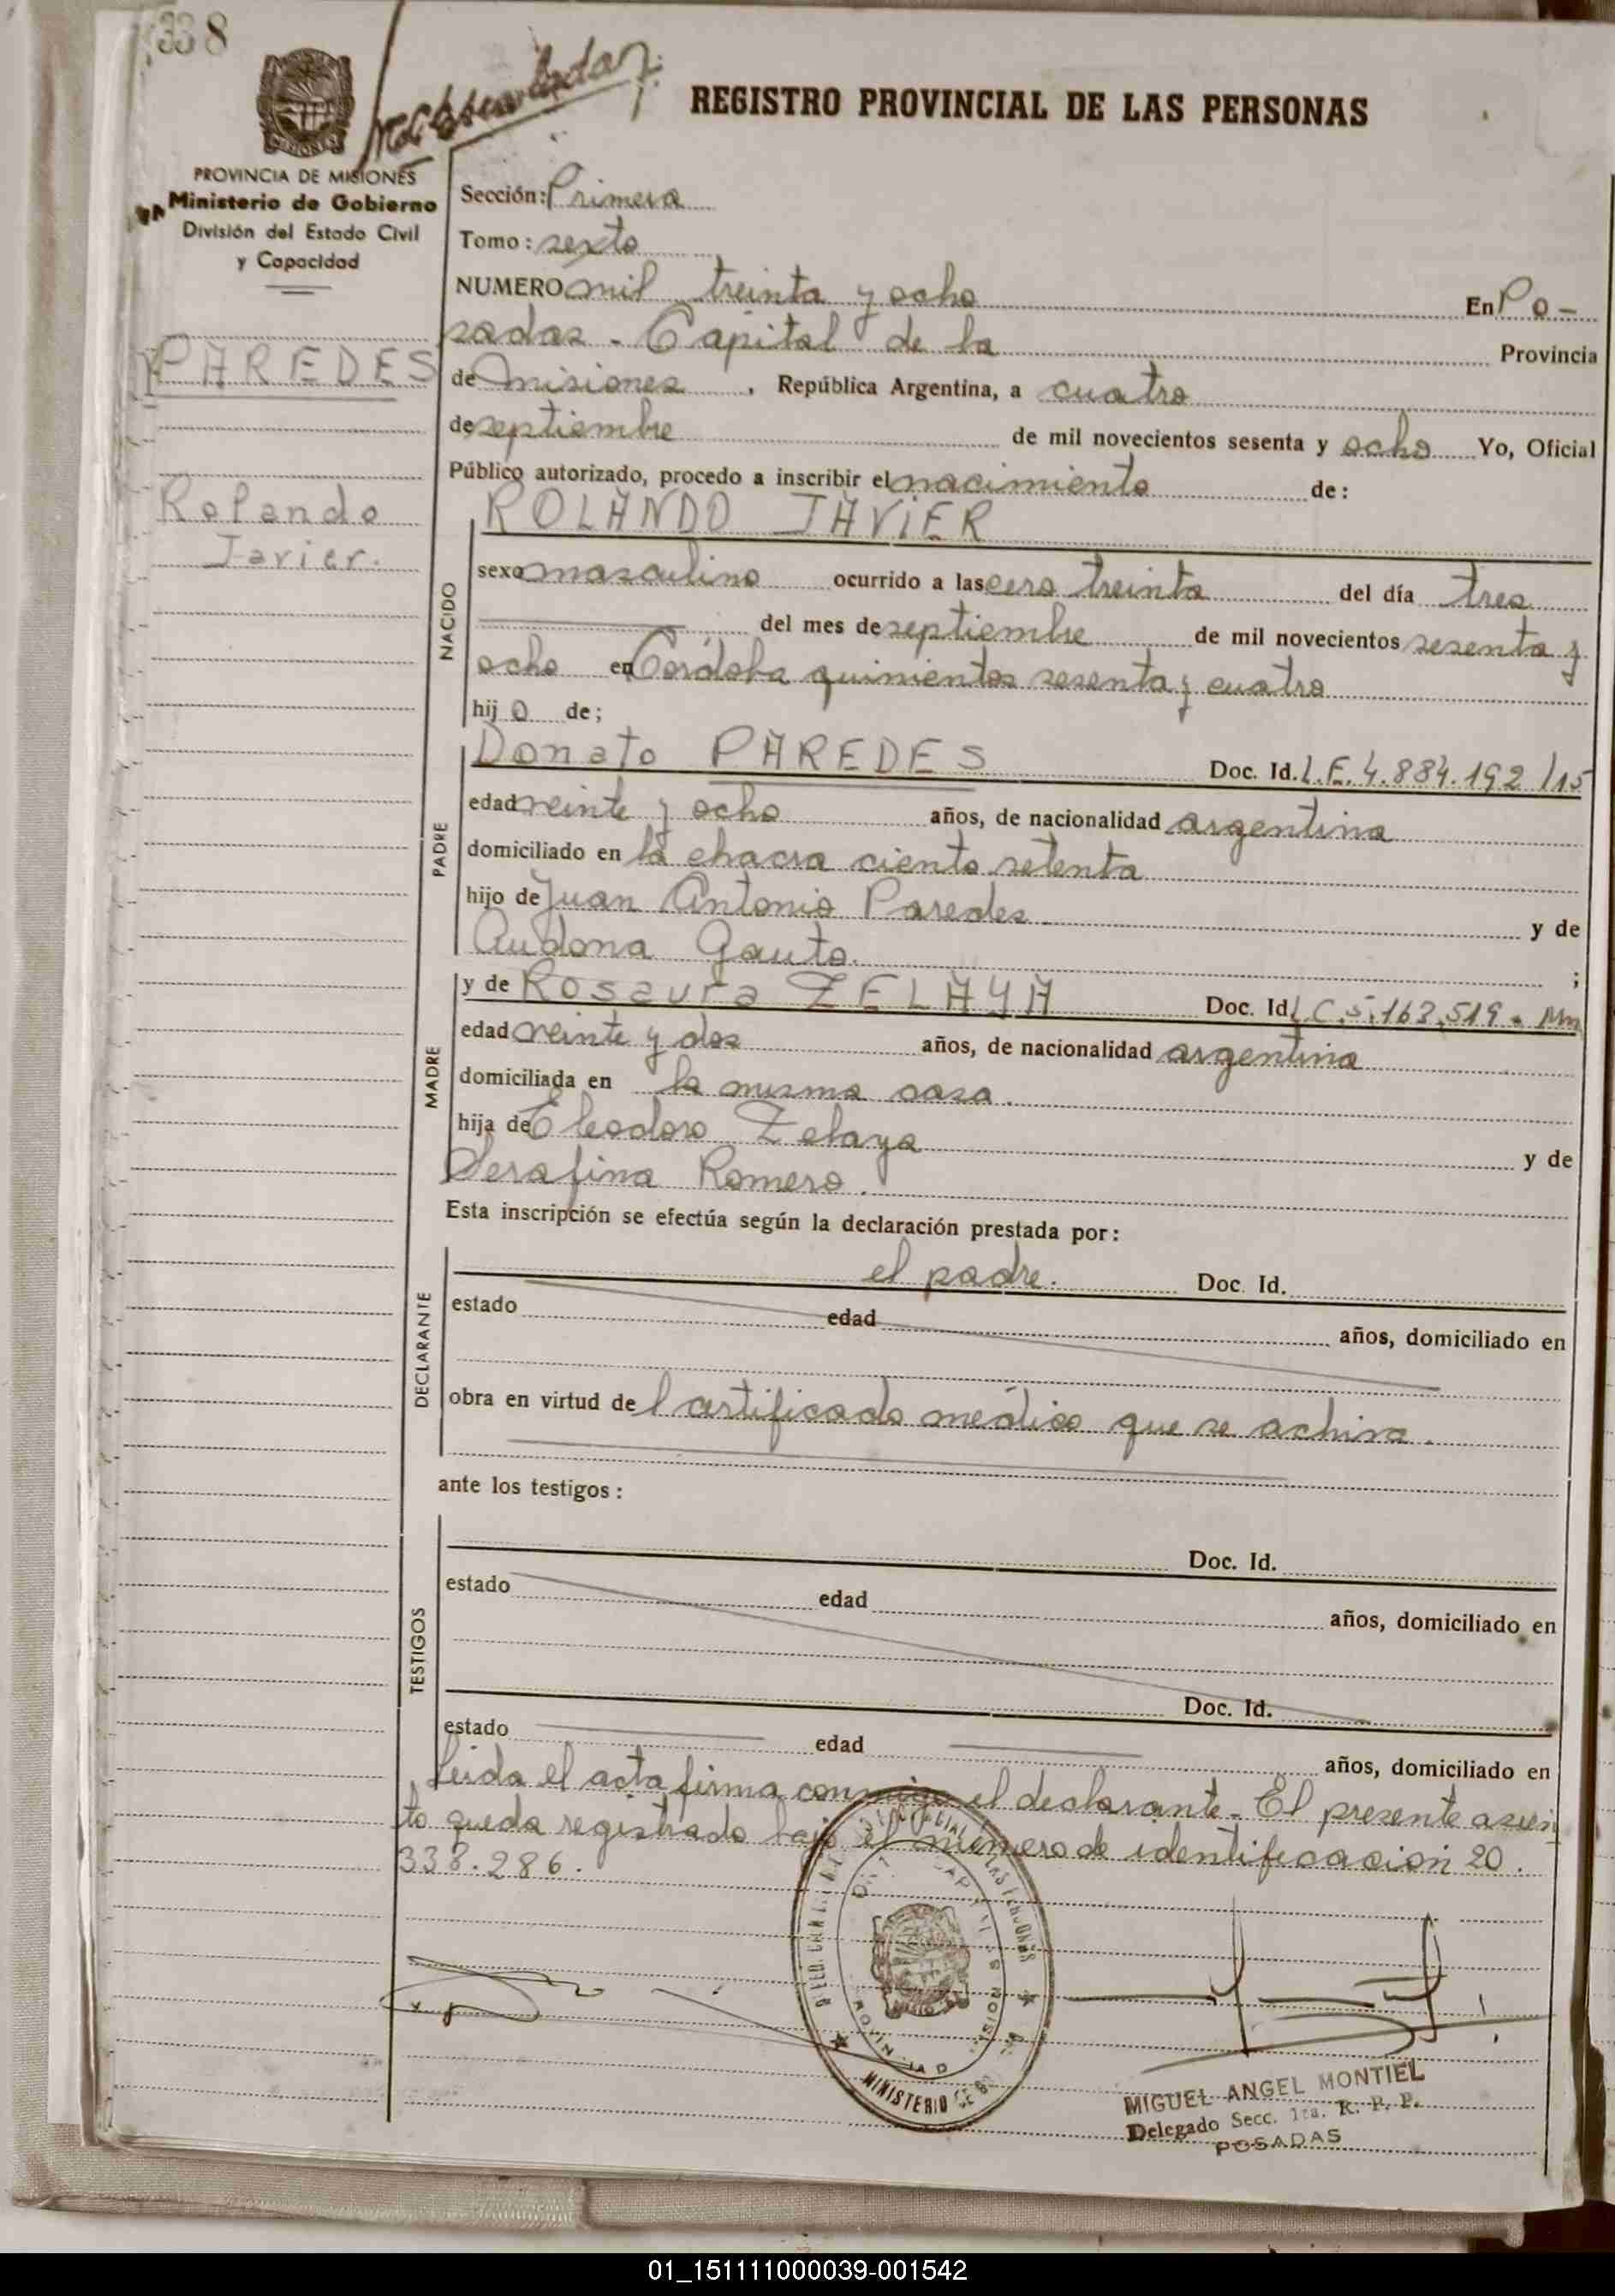 338
REGISTRO PROVINCIAL DE LAS PERSONAS
PROVINCIA DE MISIONES
Ministerio de Gobierno
División del Estado Civil
y Capacidad
PAREDES
Rolando
Javier.
Sección: Primera
Tomo: sexto
NUMERO mil treinta y ocho En Po-
sadas - Capital de la Provincia
de Misiones, República Argentina, a cuatro
de septiembre de mil novecientos sesenta y ocho Yo, Oficial
Público autorizado, procedo a inscribir el nacimiento de:
ROLANDO JAVIER
NACIDO
sexo masculino ocurrido a las cero treinta del día tres
del mes de septiembre de mil novecientos sesenta y
ocho en Córdoba quinientos sesenta y cuatro
hijo de;
PADRE
Donato PAREDES Doc. Id. L.E. 4.884.192/15
edad veinte y ocho años, de nacionalidad argentina
domiciliado en la chacra ciento setenta
hijo de Juan Antonio Paredes y de
Audona Gauto. ;
MADRE
y de Rosaura ZELAYA Doc. Id L.C.5.163.519 -
edad veinte y dos años, de nacionalidad argentina
domiciliada en la misma casa.
hija de Eleodoro Zelaya y de
Serafina Romero.
Esta inscripción se efectúa según la declaración prestada por:
DECLARANTE
el padre. Doc. Id.
estado edad años, domiciliado en
obra en virtud del certificado médico que se achiva.
ante los testigos:
TESTIGOS
Doc. Id.
estado edad años, domiciliado en
Doc. Id.
estado edad años, domiciliado en
Leida el acta firma conmigo el declarante - El presente asien
to queda registrado bajo el número de identificación 20.
338.286.
MINISTERIO
MIGUEL ANGEL MONTIEL
Delegado Secc. 1ra. R. P. P.
POSADAS
01_151111000039-001542